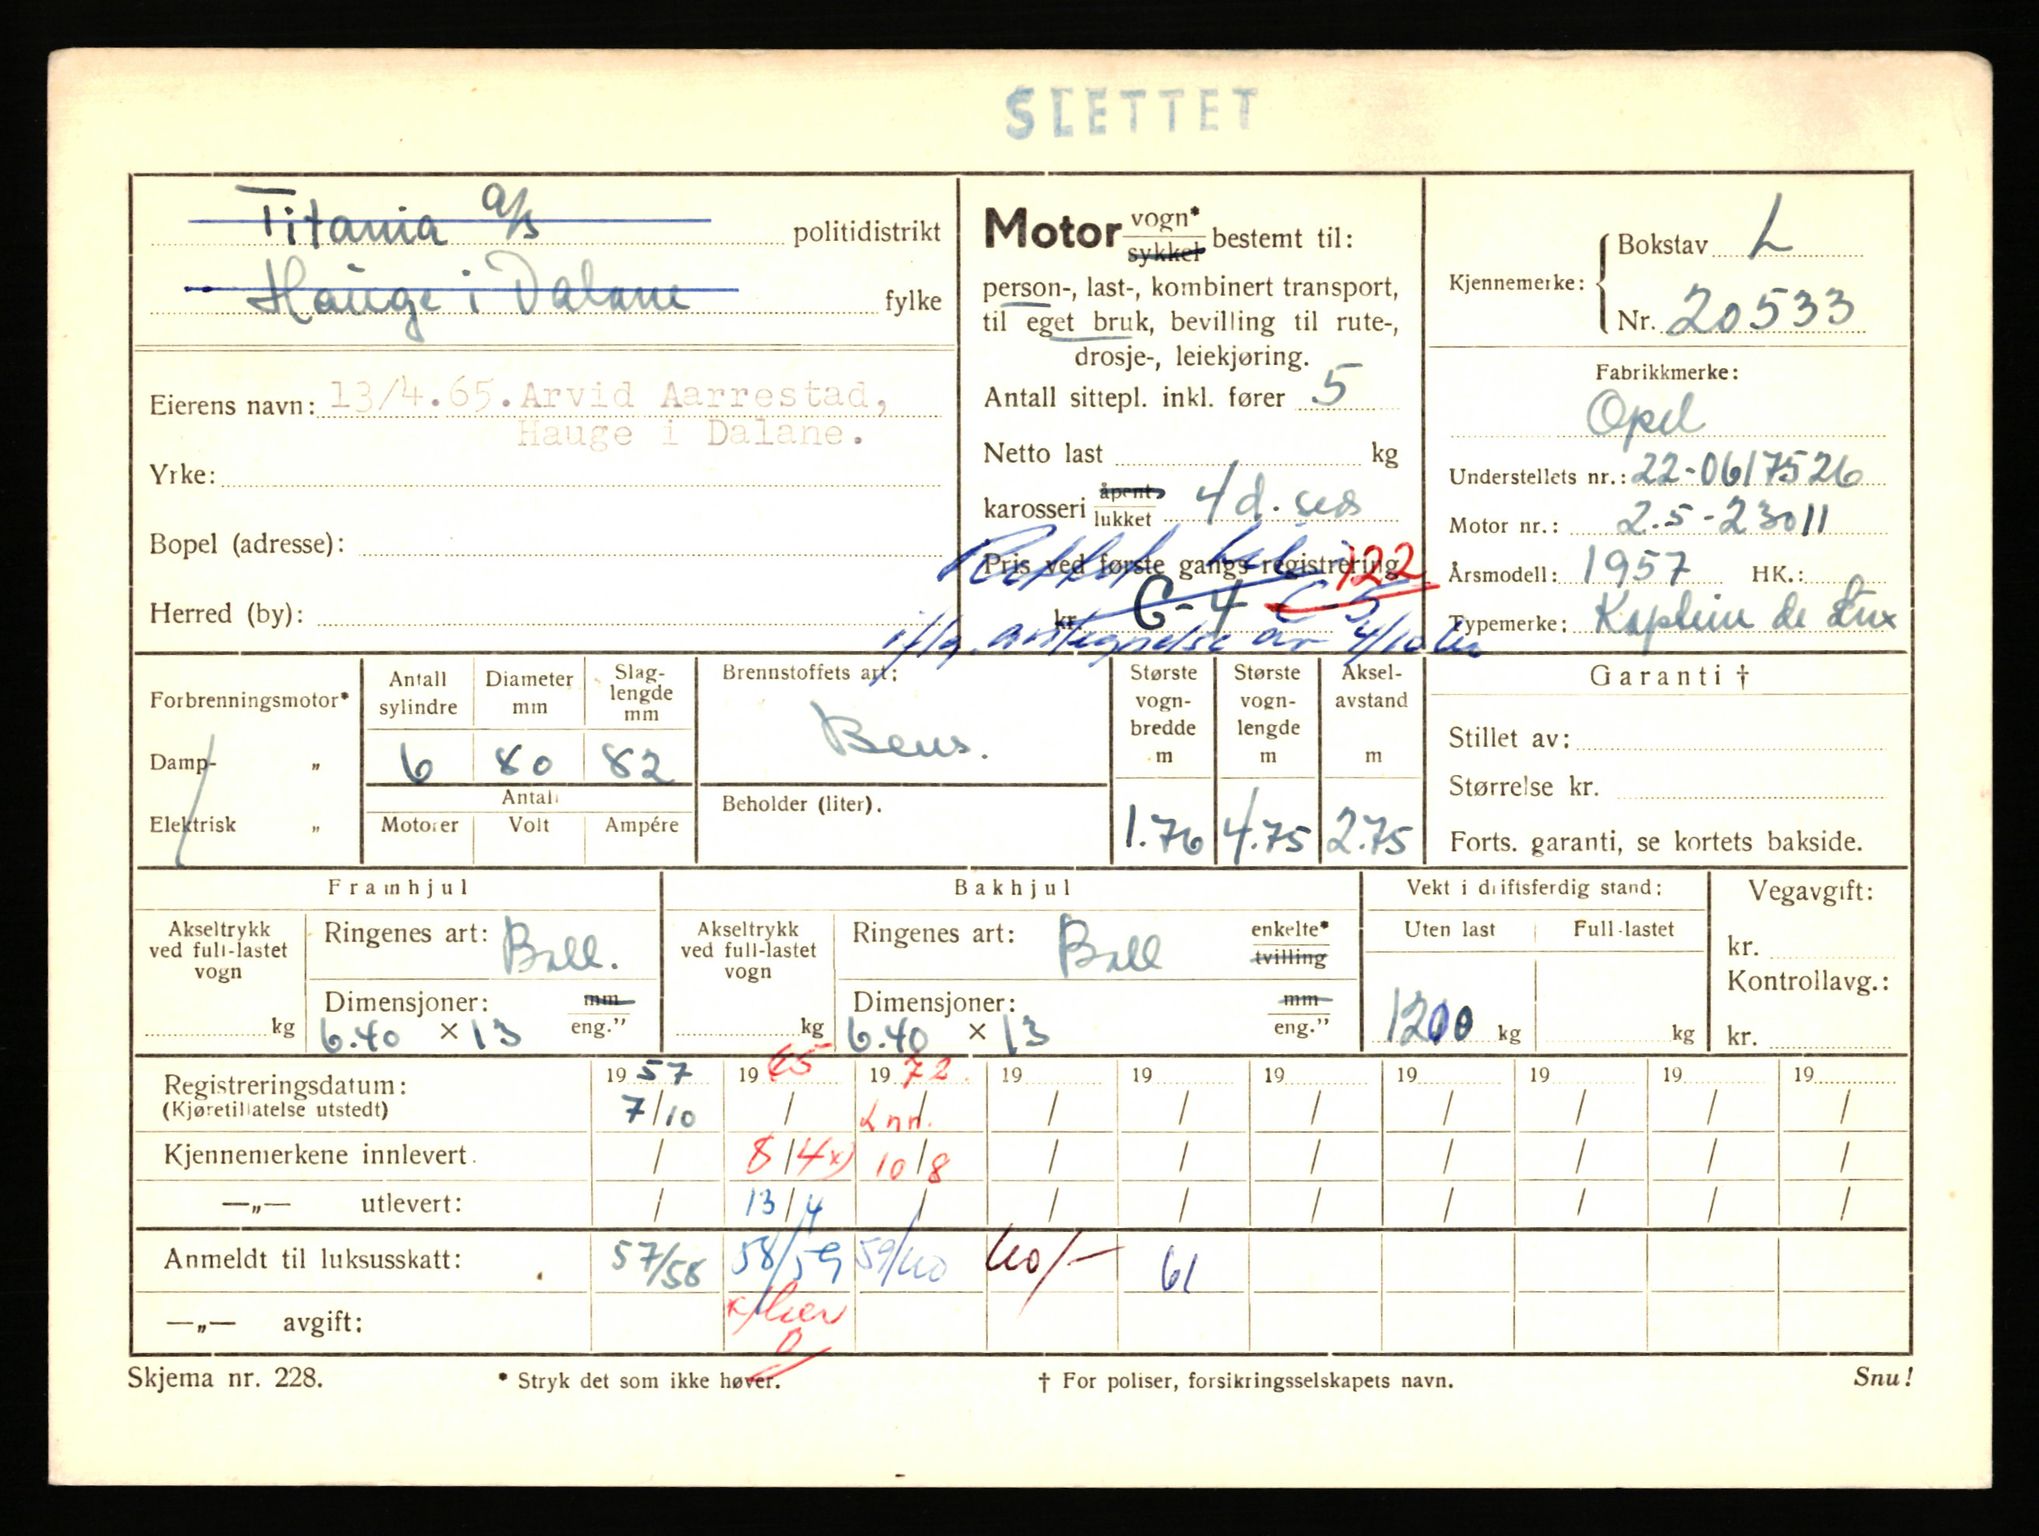 SLETTET
Titania a/s politidistrikt
Hauge i Dalane fylke
Eierens navn: 13/4.65. Arvid Aarrestad,
Hauge i Dalane.
Yrke:
Bopel (adresse):
Herred (by):
Motor vogn* sykkel bestemt til:
person-, last-, kombinert transport,
til eget bruk, bevilling til rute-,
drosje-, leiekjøring.
Antall sittepl. inkl. fører 5
Netto last kg
karosseri åpent lukket 4 d. sed
Pris ved første gangs registrering 122
kr. C-4 C-5
iflg. av 4/10
Kjennemerke: Bokstav L
Nr. 20533
Fabrikkmerke:
Opel
Understellets nr.: 22-0617526
Motor nr.: 2.5-23011
Årsmodell: 1957 HK.:
Typemerke: Kaptein de Lux
Forbrenningsmotor*
Damp- „
Elektrisk „
Antall sylindre Diameter mm Slag-lengde mm
6 80 82
Antall
Motorer Volt Ampére
Brennstoffets art:
Bens.
Beholder (liter).
Største vogn-bredde m Største vogn-lengde m Aksel-avstand m
1.76 4.75 2.75
Garanti †
Stillet av:
Størrelse kr.
Forts. garanti, se kortets bakside.
Framhjul
Akseltrykk ved full-lastet vogn
kg
Ringenes art: Ball.
Dimensjoner: mm eng.”
6.40 × 13
Bakhjul
Akseltrykk ved full-lastet vogn
kg
Ringenes art: Ball enkelte* tvilling
Dimensjoner: mm eng.”
6.40 × 13
Vekt i driftsferdig stand:
Uten last Full-lastet
1200 kg kg
Vegavgift:
kr.
Kontrollavg.:
kr.
Registreringsdatum: 19 57 19 65 19 72 19 19 19 19 19 19 19
(Kjøretillatelse utstedt) 7/10 / Inn. / / / / / / / /
Kjennemerkene innlevert. / 8/4 x) 10/8 / / / / / / /
—„— utlevert: / 13/4 / / / / / / / /
Anmeldt til luksusskatt: 57/58 58/59 59/60 60/- 61
—„— avgift: x) her
Skjema nr. 228. * Stryk det som ikke høver. † For poliser, forsikringsselskapets navn. Snu!